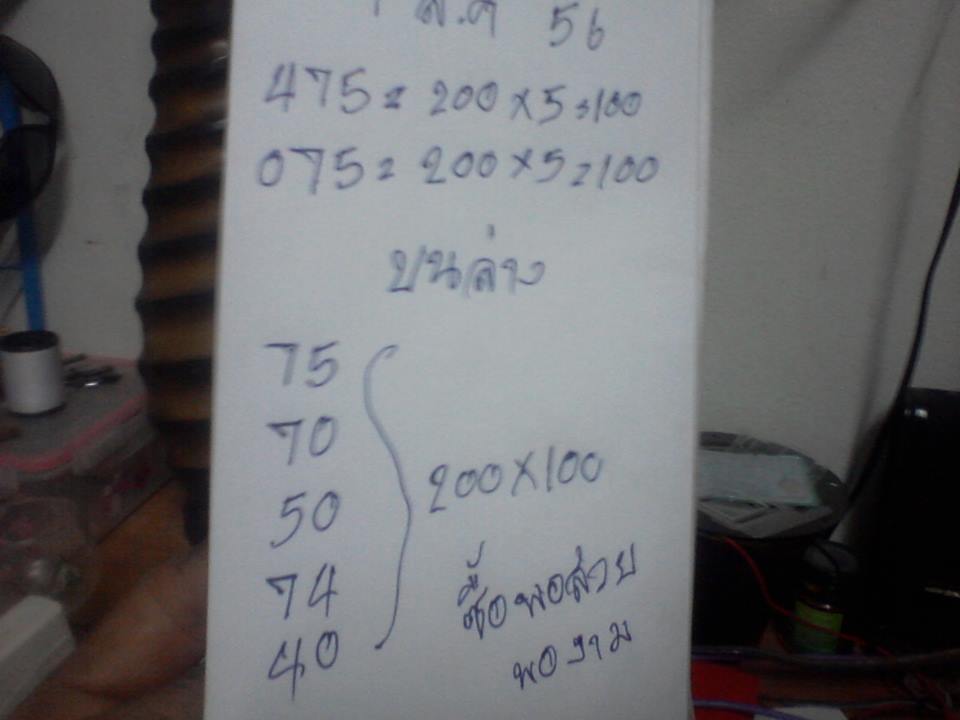 ส.ค 56
475 = 200 x 5 = 100
075 = 200 x 5 = 100
บนล่าง
75
70
50
74
40
200 x 100
ซื้อพอสวย
พองาม